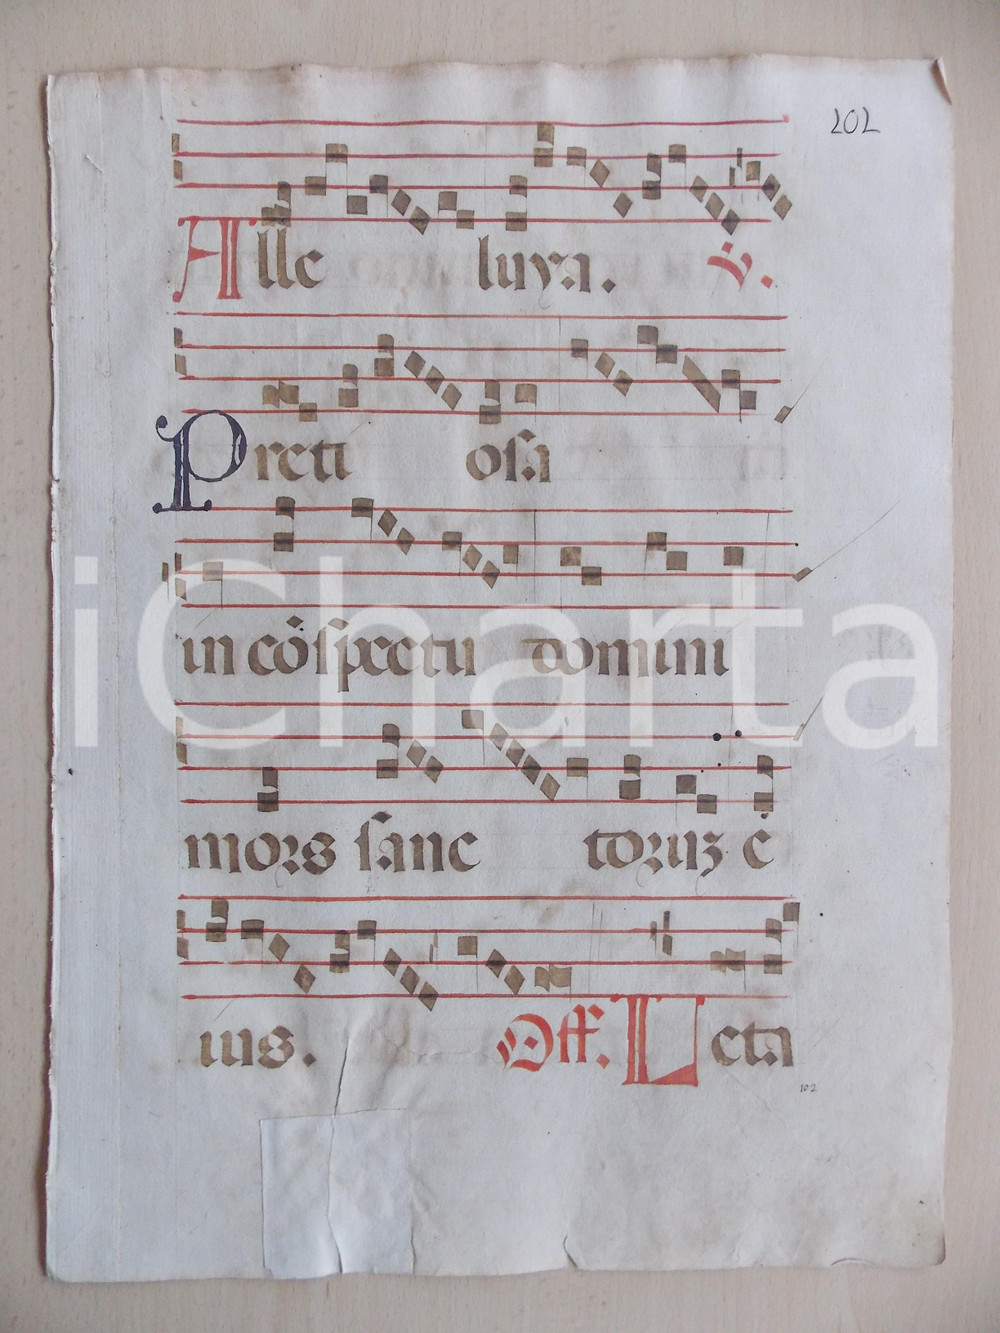 202
Alle luya. V.
Preti osa
in cōspectu domini
mors sanc toruz e
ius. Off. Leta
102
iCharta